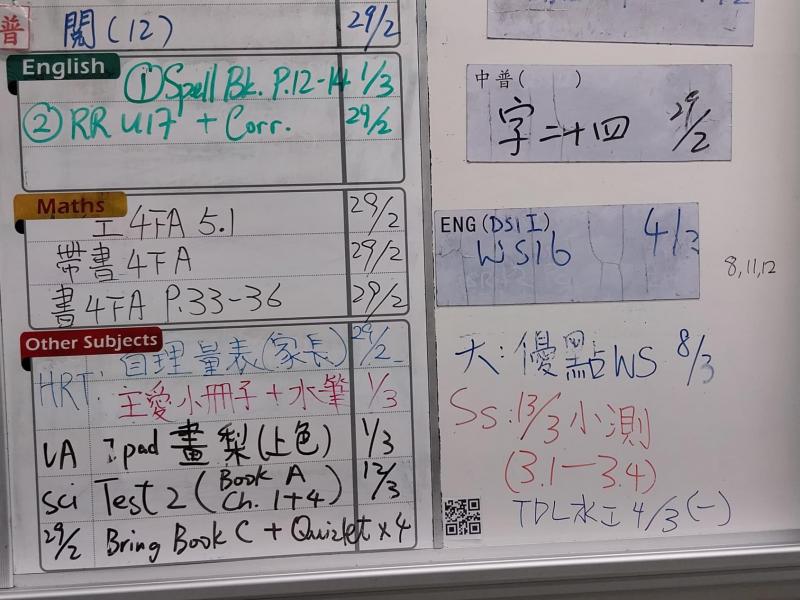 普 閱(12) 29/2
English
① Spell Bk. P.12-14 1/3
② RR U17 + Corr. 29/2
Maths
工4下A 5.1 29/2
帶書4下A 29/2
書4下A P.33-36 29/2
Other Subjects
HRT: 自理量表(家長) 29/2
主愛小冊子+水筆 1/3
VA ipad 畫梨(上色) 1/3
Sci Test 2 (Book A Ch. 1+4) 12/3
29/2 Bring Book C + Quizlet x 4
中普( )
字二十四 29/2
ENG (DSI I)
WS16 4/3
8,11,12
大:優點WS 8/3
Ss:13/3小測
(3.1—3.4)
TDL水工4/3(一)